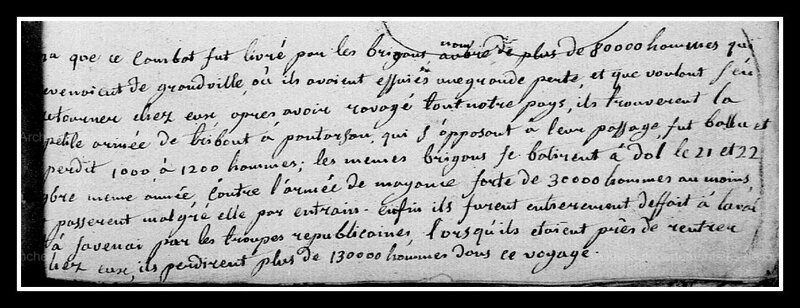 que ce Combat fut livré par les brigans, nom̄ aubre de plus de 80000 hommes qui
evenoient de grandville, où ils avoient essuiés une grande perte, et que voulant s'en
etourner chez eux, apres avoir ravagé tout notre pays, ils trouverent la
petite armée de tribout à pontorson, qui s'opposant à leur passage, fut battu et
perdit 1000 à 1200 hommes; les memes brigans se batirent à dol le 21 et 22
9bre meme année, Contre l'armée de mayance forte de 30000 hommes au moins
passerent malgré elle par entrain. enfin ils furent entierement deffait à laval
à savenai par les troupes republicaines, lorsqu'ils etoient près de rentrer
chez eux, ils perdirent plus de 130000 hommes dans ce voyage.